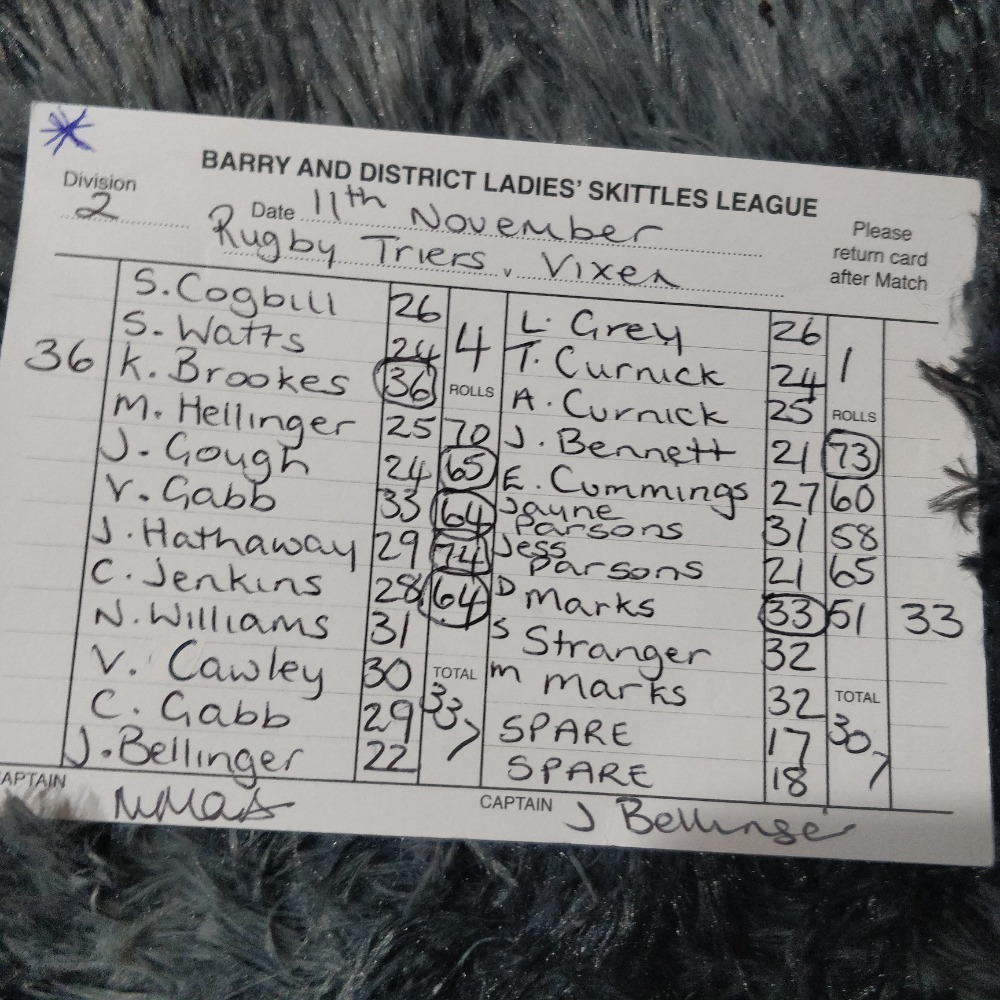 BARRY AND DISTRICT LADIES' SKITTLES LEAGUE
Division 2 Date 11th November
Please return card after Match
Rugby Triers v Vixen
S. Cogbill 26 4 L. Grey 26 1
S. Watts 24 T. Curnick 24
36 K. Brookes 36 ROLLS A. Curnick 25 ROLLS
M. Hellinger 25 70 J. Bennett 21 73
J. Gough 24 65 E. Cummings 27 60
V. Gabb 33 64 Jayne Parsons 31 58
J. Hathaway 29 74 Jess Parsons 21 65
C. Jenkins 28 64 D Marks 33 51 33
N. Williams 31 S Stranger 32
V. Cawley 30 TOTAL m marks 32 TOTAL
C. Gabb 29 337 SPARE 17 307
J. Bellinger 22 SPARE 18
CAPTAIN CAPTAIN J Bellinger